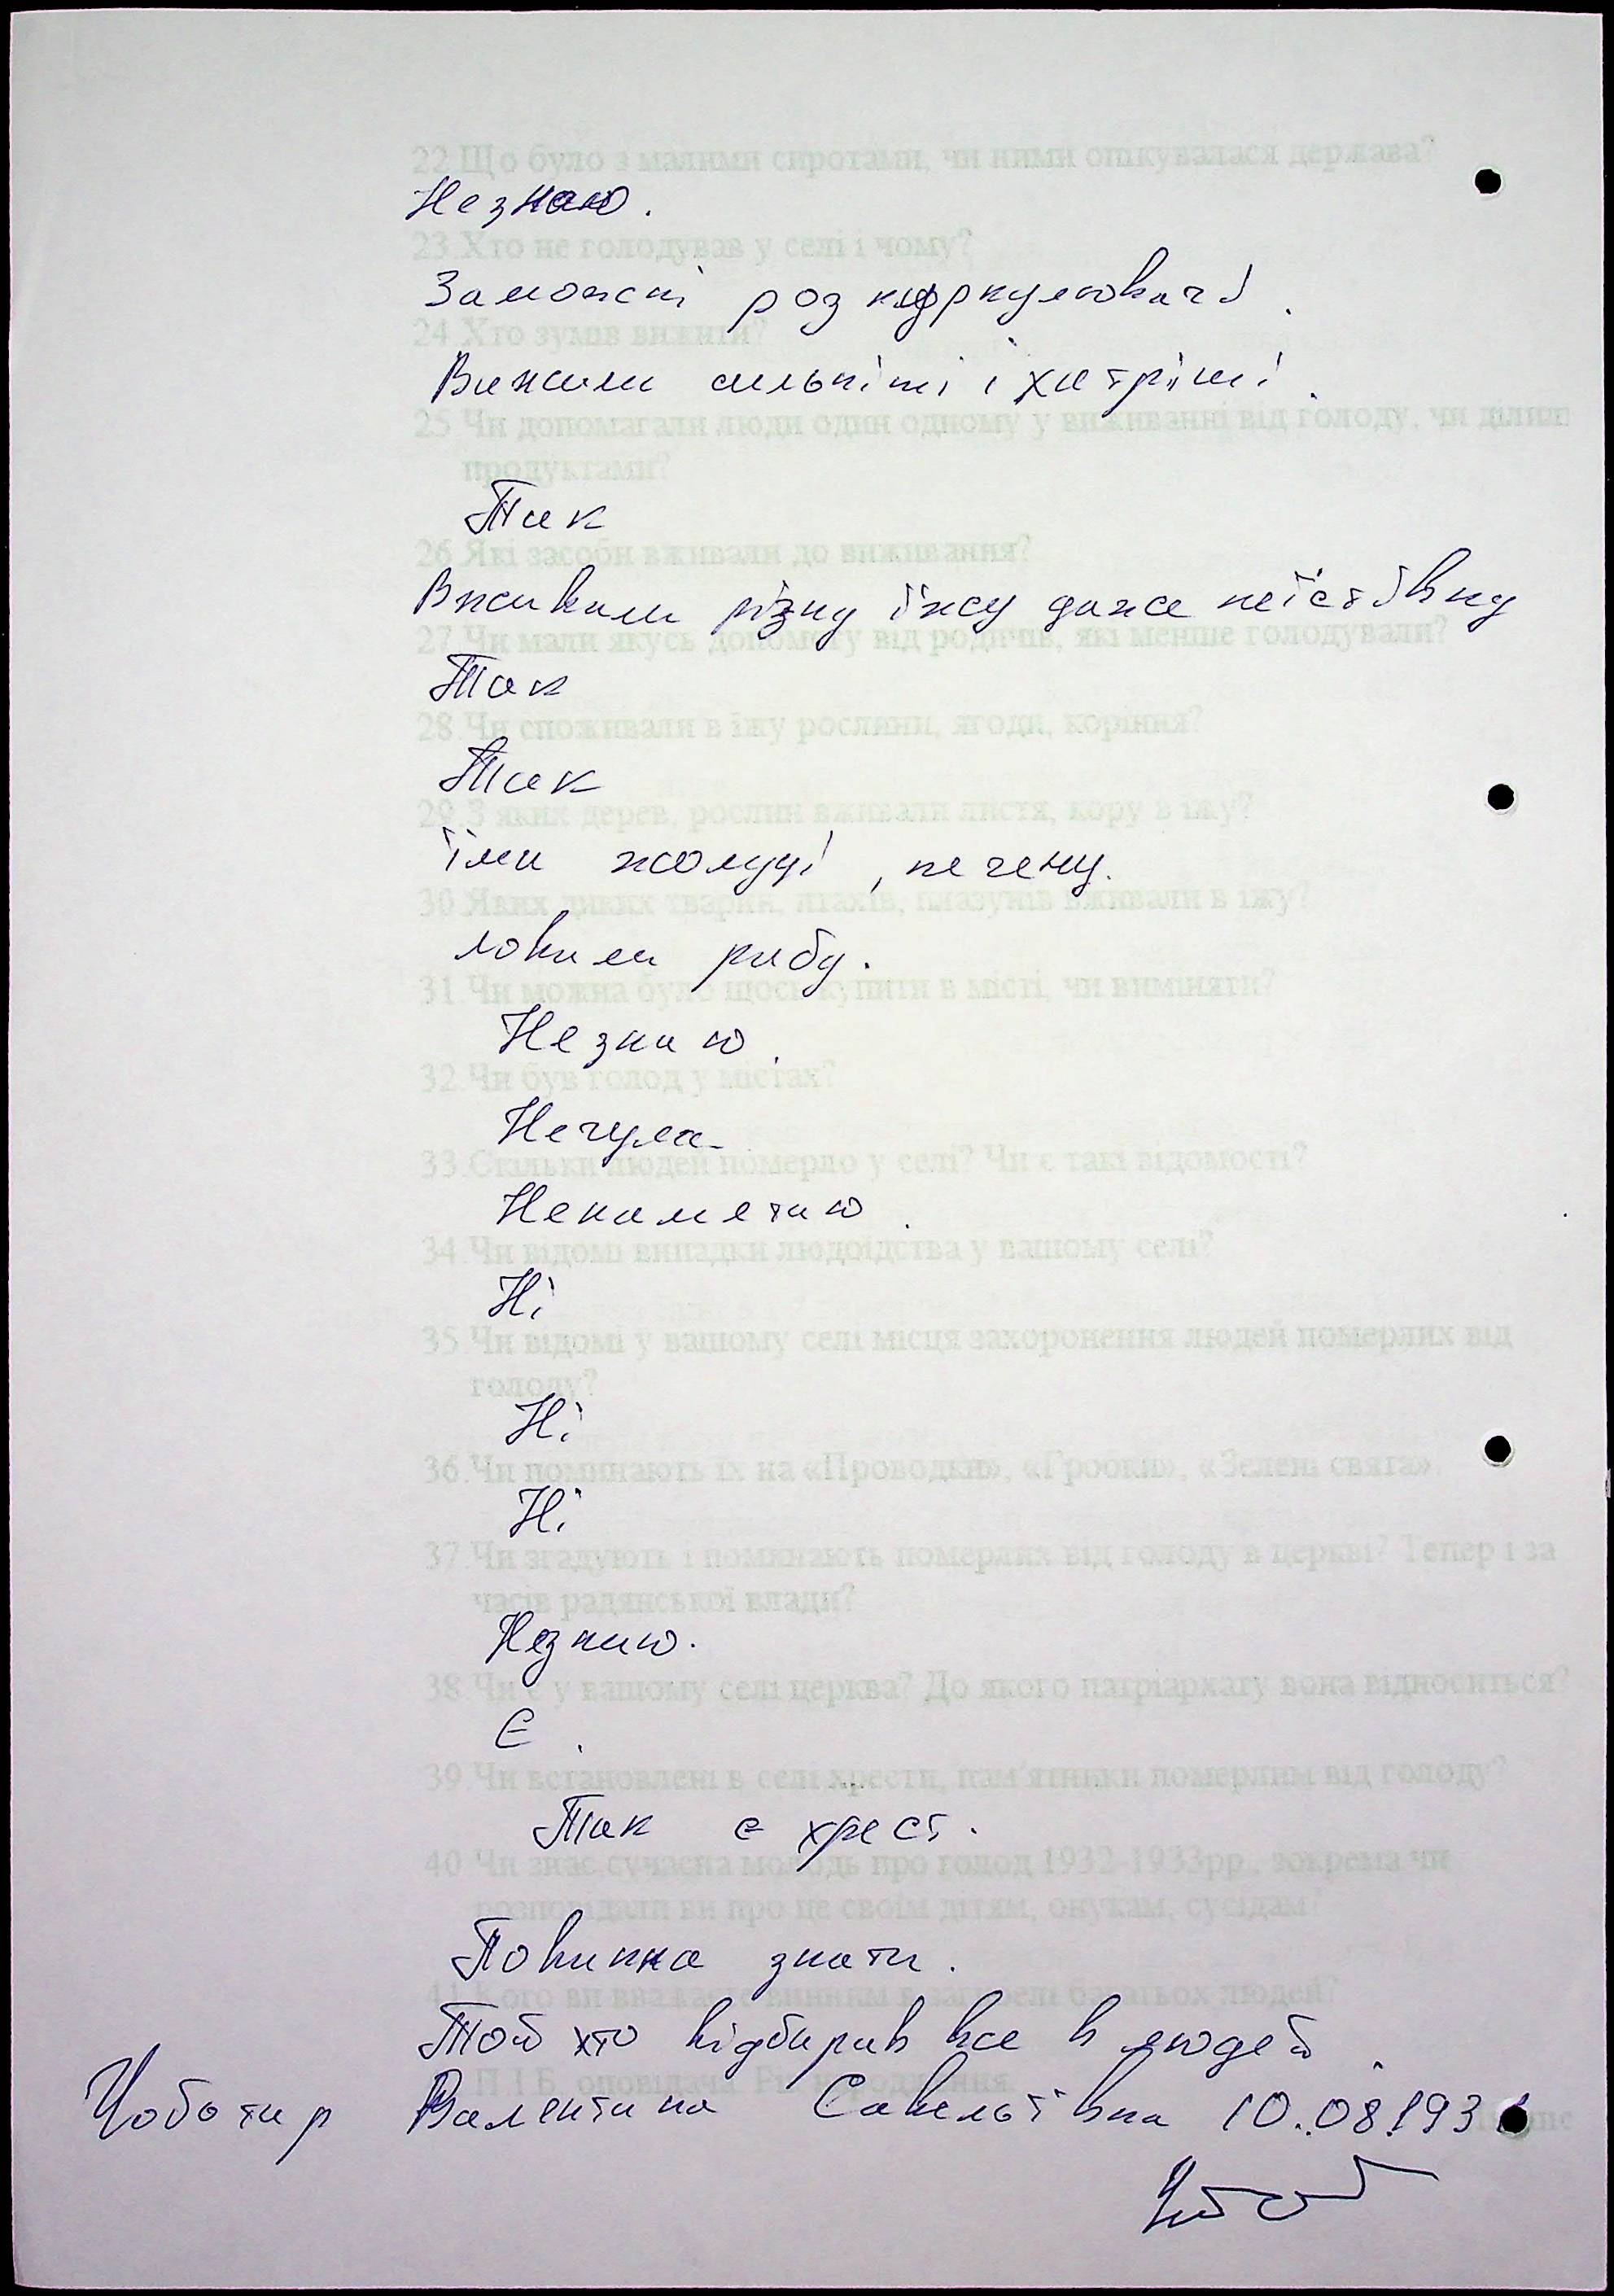 22.Що було з малими сиротами, чи ними опікувалася держава?
Незнаю.
23.Хто не голодував у селі і чому?
Заможні розкуркулювачі.
24.Хто зумів вижити?
Вижили сильніші і хитріші.
25.Чи допомагали люди один одному у виживанні від голоду, чи ділил
продуктами?
Так
26.Які засоби вживали до виживання?
Вживали різну їжу даже неїстівну
27.Чи мали якусь допомогу від родичів, які менше голодували?
Так
28.Чи споживали в їжу рослини, ягоди, коріння?
Так
29.З яких дерев, рослин вживали листя, кору в їжу?
їли жолуді,
30.Яких диких тварин, птахів, плазунів вживали в їжу?
ловили рибу.
31.Чи можна було щось купити в місті, чи виміняти?
Незнаю.
32.Чи був голод у містах?
Нечула.
33.Скільки людей померло у селі? Чи є такі відомості?
Непаметаю.
34.Чи відомі випадки людоїдства у вашому селі?
Ні
35.Чи відомі у вашому селі місця захоронення людей померлих від
голоду?
Ні
36.Чи поминають їх на «Проводки», «Гробки», «Зелені свята».
Ні
37.Чи згадують і поминають померлих від голоду в церкві? Тепер і за
часів радянської влади?
Незнаю.
38.Чи є у вашому селі церква? До якого патріархату вона відноситься?
Є.
39.Чи встановлені в селі хрести, пам'ятники померлим від голоду?
Так є хрест.
40.Чи знає сучасна молодь про голод 1932-1933рр., зокрема чи
розповідали ви про це своїм дітям, онукам, сусідам?
Повинна знати.
41.Кого ви вважаєте винним в загибелі багатьох людей?
Той хто відбирав все в людей.
П.І.Б. оповідача. Рік народження.
Чоботар Валентина Савеліївна 10.08.193